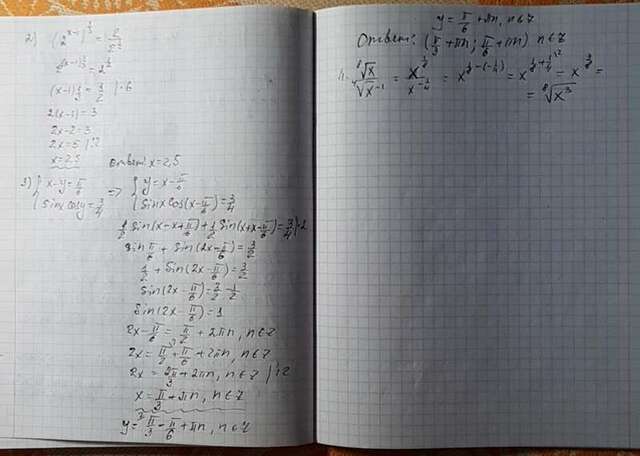 2) (2^{x-1})^{\frac{1}{3}} =
2^{(x-1)\frac{1}{3}} = 2^{\frac{3}{2}}
(x-1)\frac{1}{3} = \frac{3}{2} | · 6
2(x-1) = 3
2x-2=3
2x=5 |:2
x=2,5 Ответ: x=2,5
3) { x-y=\frac{π}{6} => { y=x-\frac{π}{6}
{ sinx cosy=\frac{3}{4} { sinx cos(x-\frac{π}{6})=\frac{3}{4}
\frac{1}{2} sin(x-x+\frac{π}{6})+\frac{1}{2} sin(x+x-\frac{π}{6})=\frac{3}{4} | ·2
sin\frac{π}{6} + sin(2x-\frac{π}{6})=\frac{3}{2}
\frac{1}{2} + sin(2x-\frac{π}{6})=\frac{3}{2}
sin(2x-\frac{π}{6})=\frac{3}{2}-\frac{1}{2}
sin(2x-\frac{π}{6})=1
2x-\frac{π}{6}=\frac{π}{2}+2πn, n∈Z
2x=\frac{π}{2}+\frac{π}{6}+2πn, n∈Z
2x=\frac{2π}{3}+2πn, n∈Z |:2
x=\frac{π}{3}+πn, n∈Z
y=\frac{π}{3}-\frac{π}{6}+πn, n∈Z
y=\frac{π}{6}+πn, n∈Z
Ответ: (\frac{π}{3}+πn; \frac{π}{6}+πn) n∈Z
= x^{\frac{3}{8}} =
= \sqrt[8]{x^3}